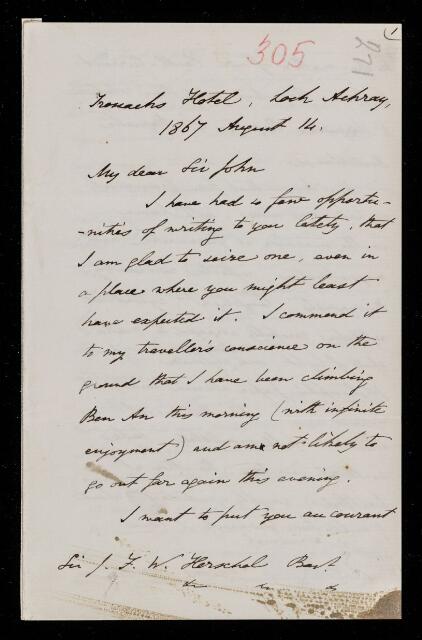 305
271
1
Trosachs Hotel, Loch Achray,
1867 August 14.
My dear Sir John
I have had so few opportu-
-nities of writing to you lately, that
I am glad to seize one, even in
a place where you might least
have expected it. I commend it
to my traveller's conscience on the
ground that I have been climbing
Ben An this morning (with infinite
enjoyment) and am not likely to
go out far again this evening.
I want to put you au courant
Sir J. F. W. Herschel Bart